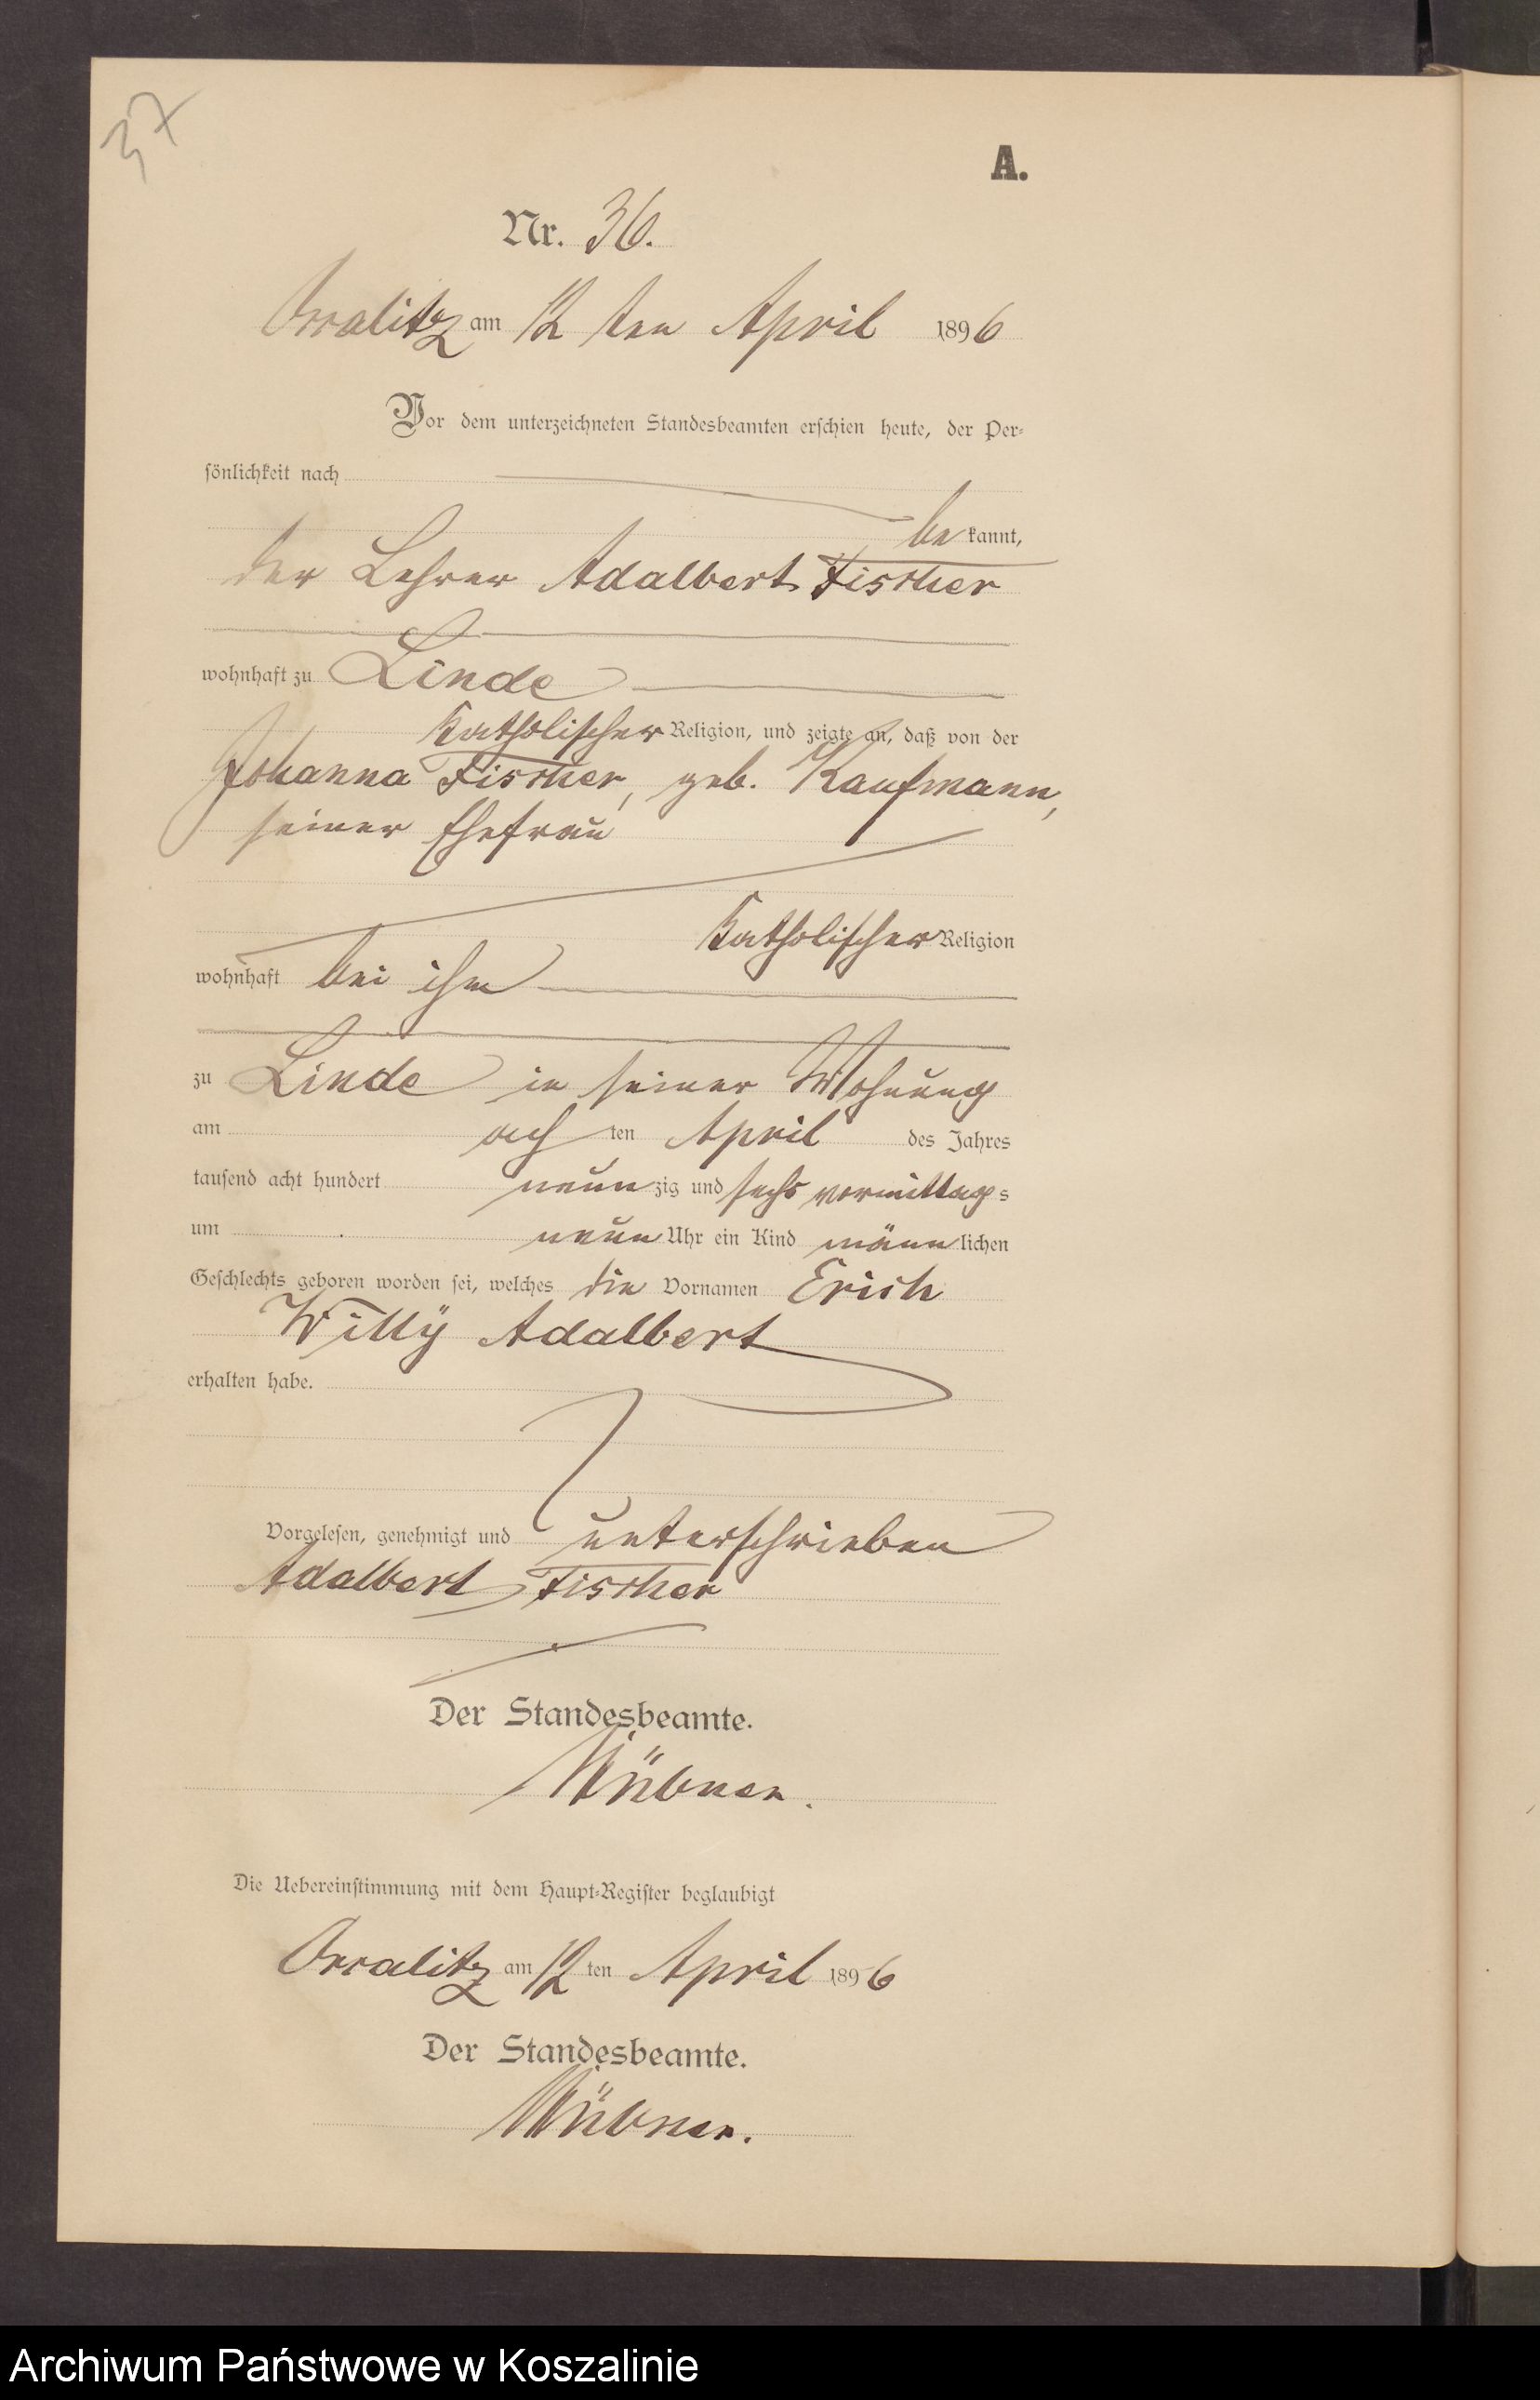 37
A.
Nr. 36.
am 12 ten April 1896
Vor dem unterzeichneten Standesbeamten erschien heute, der Per-
sönlichkeit nach
be kannt,
der Lehrer Adalbert Fischer
wohnhaft zu Linde
katholischer Religion, und zeigte an, daß von der
Johanna Fischer, geb. Kaufmann,
seiner Ehefrau
katholischer Religion
wohnhaft bei ihm
zu Linde in seiner Wohnung
am ach ten April des Jahres
tausend acht hundert neun zig und sechs vormittag s
um neun Uhr ein Kind männ lichen
Geschlechts geboren worden sei, welches die Vornamen Erich
Willy Adalbert
erhalten habe.
Vorgelesen, genehmigt und unterschrieben
Adalbert Fischer
Der Standesbeamte.
Die Uebereinstimmung mit dem Haupt-Register beglaubigt
am 12 ten April 1896
Der Standesbeamte.
Archiwum Państwowe w Koszalinie